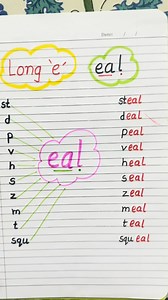 Date: / /
Long 'e' eal
st steal
d deal
p peal
v veal
h heal
s seal
z zeal
m eal meal
t teal
squ squeal